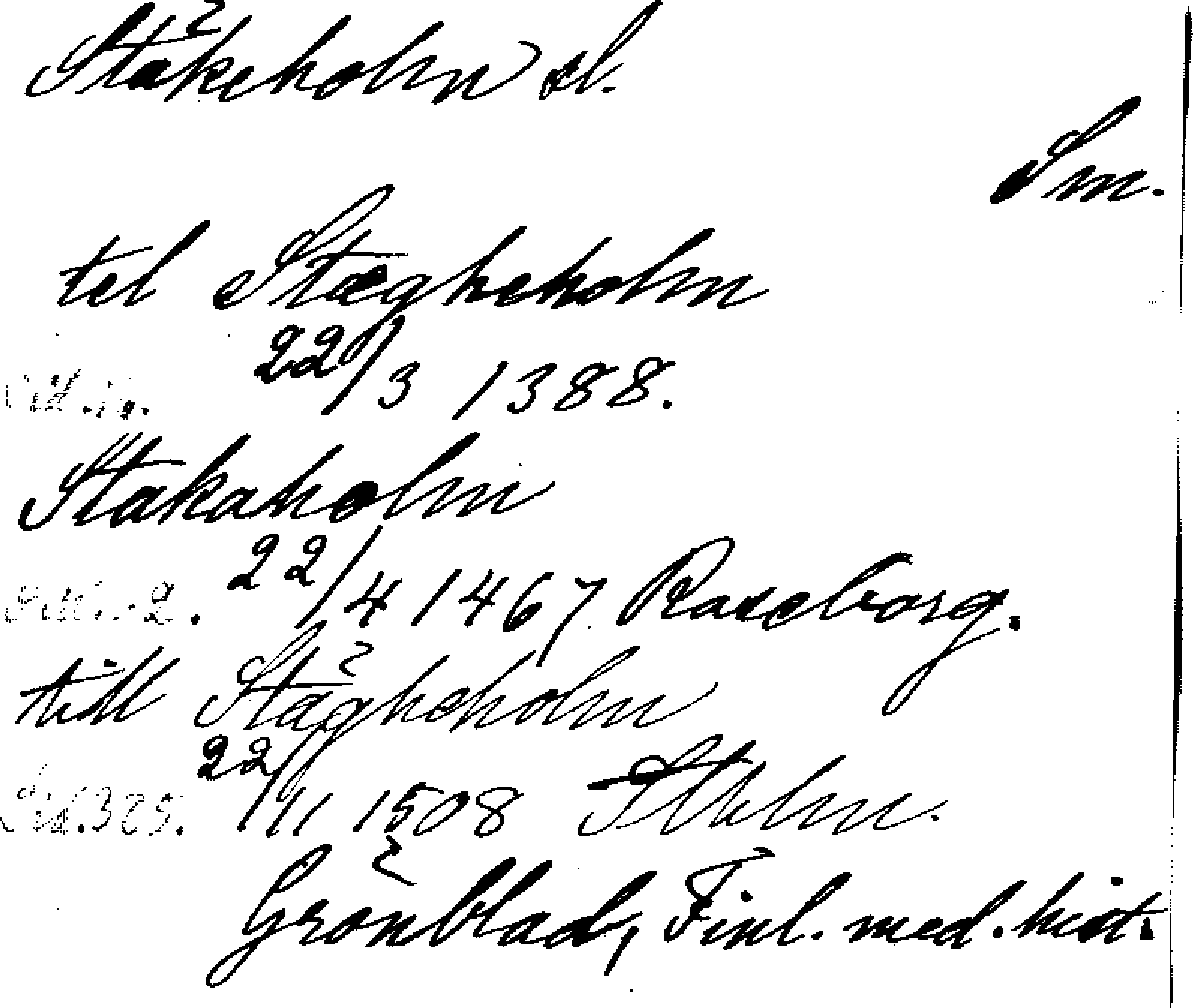 Stäkeholm sl.
Sm.
tel Stægheholm
22/3 1388.
Stakaholm
22/4 1467 Raseborg.
till Stägheholm
Sid. 325. 22/11 1508 Sthlm.
Grönblad, Finl. med. hist.